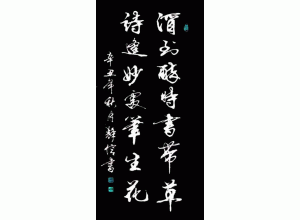 酒到酣時書帶草
詩逢妙處筆生花
辛丑年秋月静信書